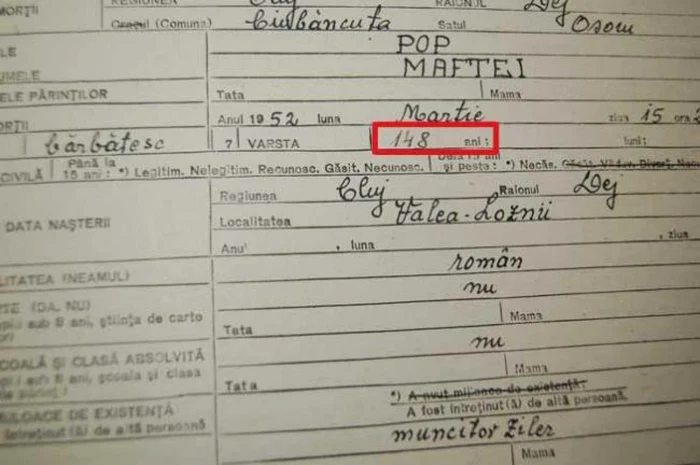 MORȚII
REGIUNEA Cluj RAIONUL Dej
Orașul (Comuna) Ciubăncuța Satul Osoiu
POP
MAFTEI
ELE PĂRINȚILOR Tata Mama
Anul 1952 luna Martie ziua 15 ora
bărbătesc 7 VARSTA 148 ani: luni:
CIVILĂ Până la 15 ani: *) Legitim. Nelegitim. Recunosc. Găsit. Necunosc. și peste: *) Necăs.
Regiunea Cluj Raionul Dej
DATA NAȘTERII Localitatea Valea-Loznii
Anul , luna , ziua
LITATEA (NEAMUL) român
RTE (DA, NU) nu
sub 8 ani, știința de carte
Tata Mama
COALĂ ȘI CLASĂ ABSOLVITĂ nu
sub 8 ani, școala și clasa
Tata Mama
*) A avut mijloace de existență:
JLOACE DE EXISTENȚĂ A fost întreținut(ă) de altă persoană.
întreținut(ă) de altă persoană
muncitor ziler
Mama